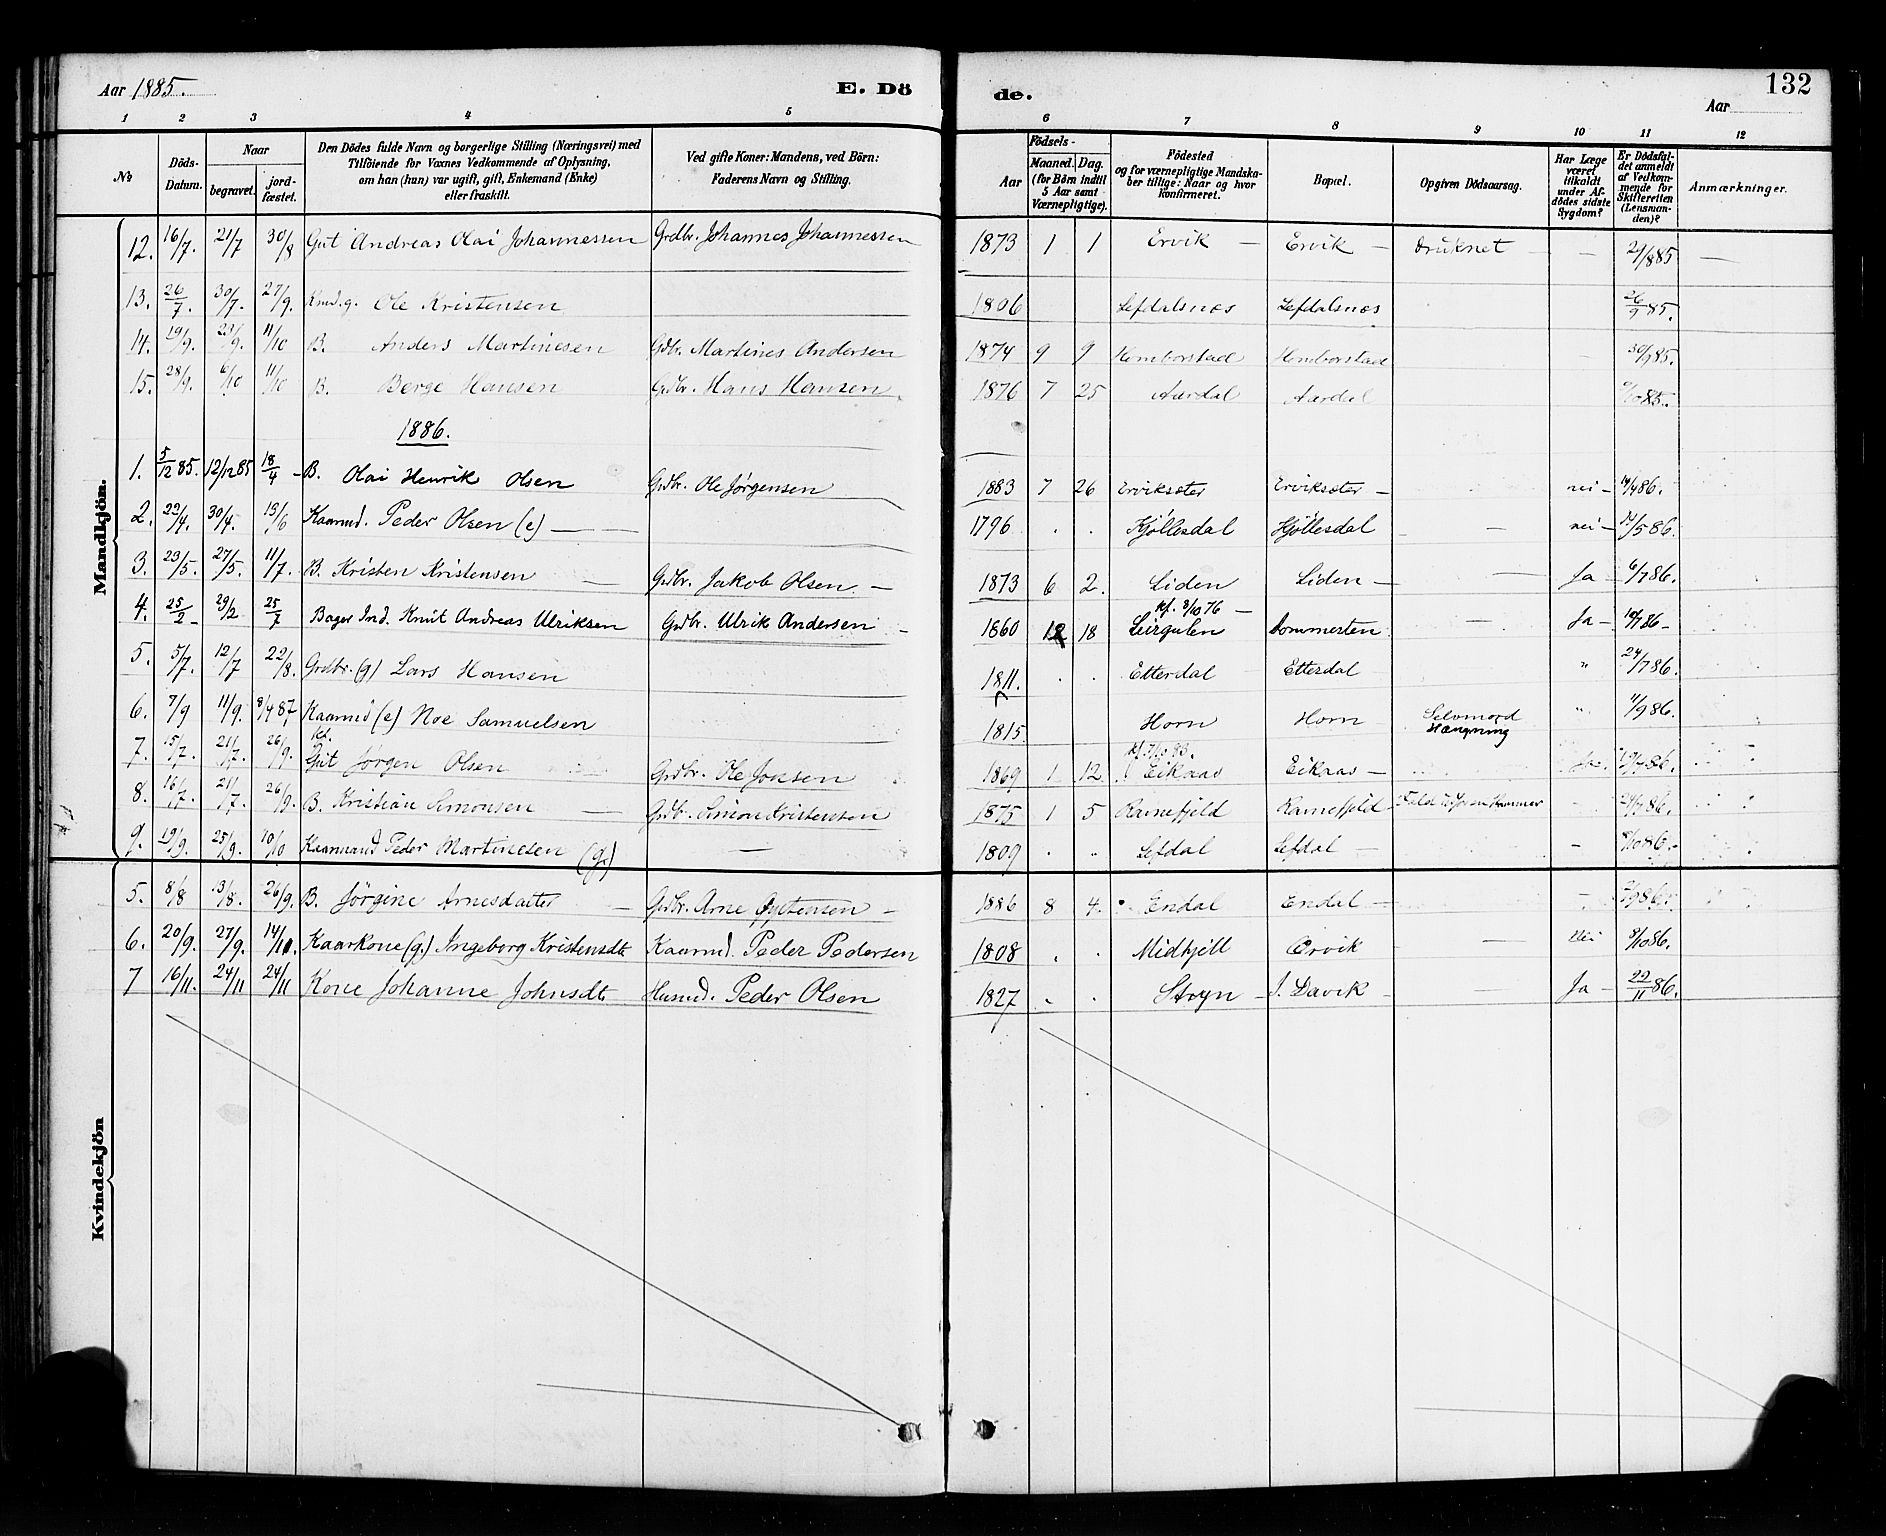 Aar 1885. E. Dö de. Aar 132
1 2 3 4 5 6 7 8 9 10 11 12
№ Döds-Datum. Naar begravet. jordfæstet. Den Dödes fulde Navn og borgerlige Stilling (Næringsvei) med Tilföiende for Voxnes Vedkommende af Oplysning, om han (hun) var ugift, gift, Enkemand (Enke) eller fraskilt. Ved gifte Koner: Mandens, ved Börn: Faderens Navn og Stilling. Födsels- Aar Maaned. Dag. (for Börn indtil 5 Aar samt Værnepligtige). Födested og for værnepligtige Mandskaber tillige: Naar og hvor konfirmeret. Bopæl. Opgiven Dödsaarsag. Har Læge været tilkaldt under Afdödes sidste Sygdom? Er Dödsfaldet anmeldt af Vedkommende for Skifteretten (Lensmanden)? Anmærkninger.
Mandkjön.
12. 16/7. 21/7 30/8 Gut Andreas Olai Johannessen Grdbr. Johannes Johannessen 1873 1 1 Ervik — Ervik — Druknet — — 29/885 —
13. 26/7. 30/7. 27/9. Kmd. g. Ole Kristensen 1806 Lefdalsnæs Lefdalsnæs 26/9 85.
14. 19/9. 23/9. 11/10 B. Anders Martinesen Gdbr. Martines Andersen 1874 9 9 Hemborstad Hemborstad 30/985.
15. 28/9. 6/10 11/10 B. Berge Hansen Grdbr. Hans Hansen 1876 7 25 Aardal Aardal /1085.
1886.
1. 5/12 85. 12/1285 18/4 — B. Olai Henrik Olsen Grdbr. Ole Jørgensen 1883 7 26 Erviksæter Erviksæter — nei — 14/486.
2. 22/4. 30/4. 13/6 Kaarmd. Peder Olsen (e) — — 1796 . . Kjöllesdal Hjöllesdal — nei — /586.
3. 23/5. 27/5. 11/7. B. Kristen Kristensen — Grdbr. Jakob Olsen. — 1873 6 2. Liden Liden — — Ja — 6/786.
4. 25/2 — 29/2 25/7 Bager Ind. Knut Andreas Ulriksen Grdbr. Ulrik Andersen — 1860 12 18 kf. 8/1076 — Leirgulen Dommesten — Ja — 10/786 —
5. 5/7. 12/7 22/8. Grdbr. (g) Lars Hansen 1811. . . Etterdal Etterdal " 24/786.
6. 7/9 11/9. 8/487, Kaarmd (e) Noe Samuelsen 1815. Horn Horn Selvmord Hængning " 11/986.
7. 15/7. 21/7. 26/9. kf. Gut Jørgen Olsen Grdbr. Ole Jonsen 1869 1 12. Eikaas Eikaas — Ja. 19/786.
8. 16/7. 21/7. 26/9. B. Kristian Simonsen — Grdbr. Simon Kristensen 1875 1 5 Ramefjeld Ramefjeld 24/786.
9. 19/9. 25/9. 10/10 Kaarmand Peder Martinesen (g) — 1809 . . Lefdal Lefdal — — 8/1086.
Kvindekjön
5. 8/8 13/8. 26/9. B. Jørgine Arnesdatter — Grdbr. Arne Øystensen — 1886 8 4. Endal Endal — — /986.
6. 20/9. 27/9. 14/11. Kaarkone (g.) Ingeborg Kristensdt. Kaarmd. Peder Pedersen 1808 . . Midhjell Ervik — Nei 8/1086.
7 16/11. 24/11 24/11 Kone Johanne Johnsdt. Husmd. Peder Olsen 1827 . . Stryn — I. Davik — — Ja — 22/11 86.